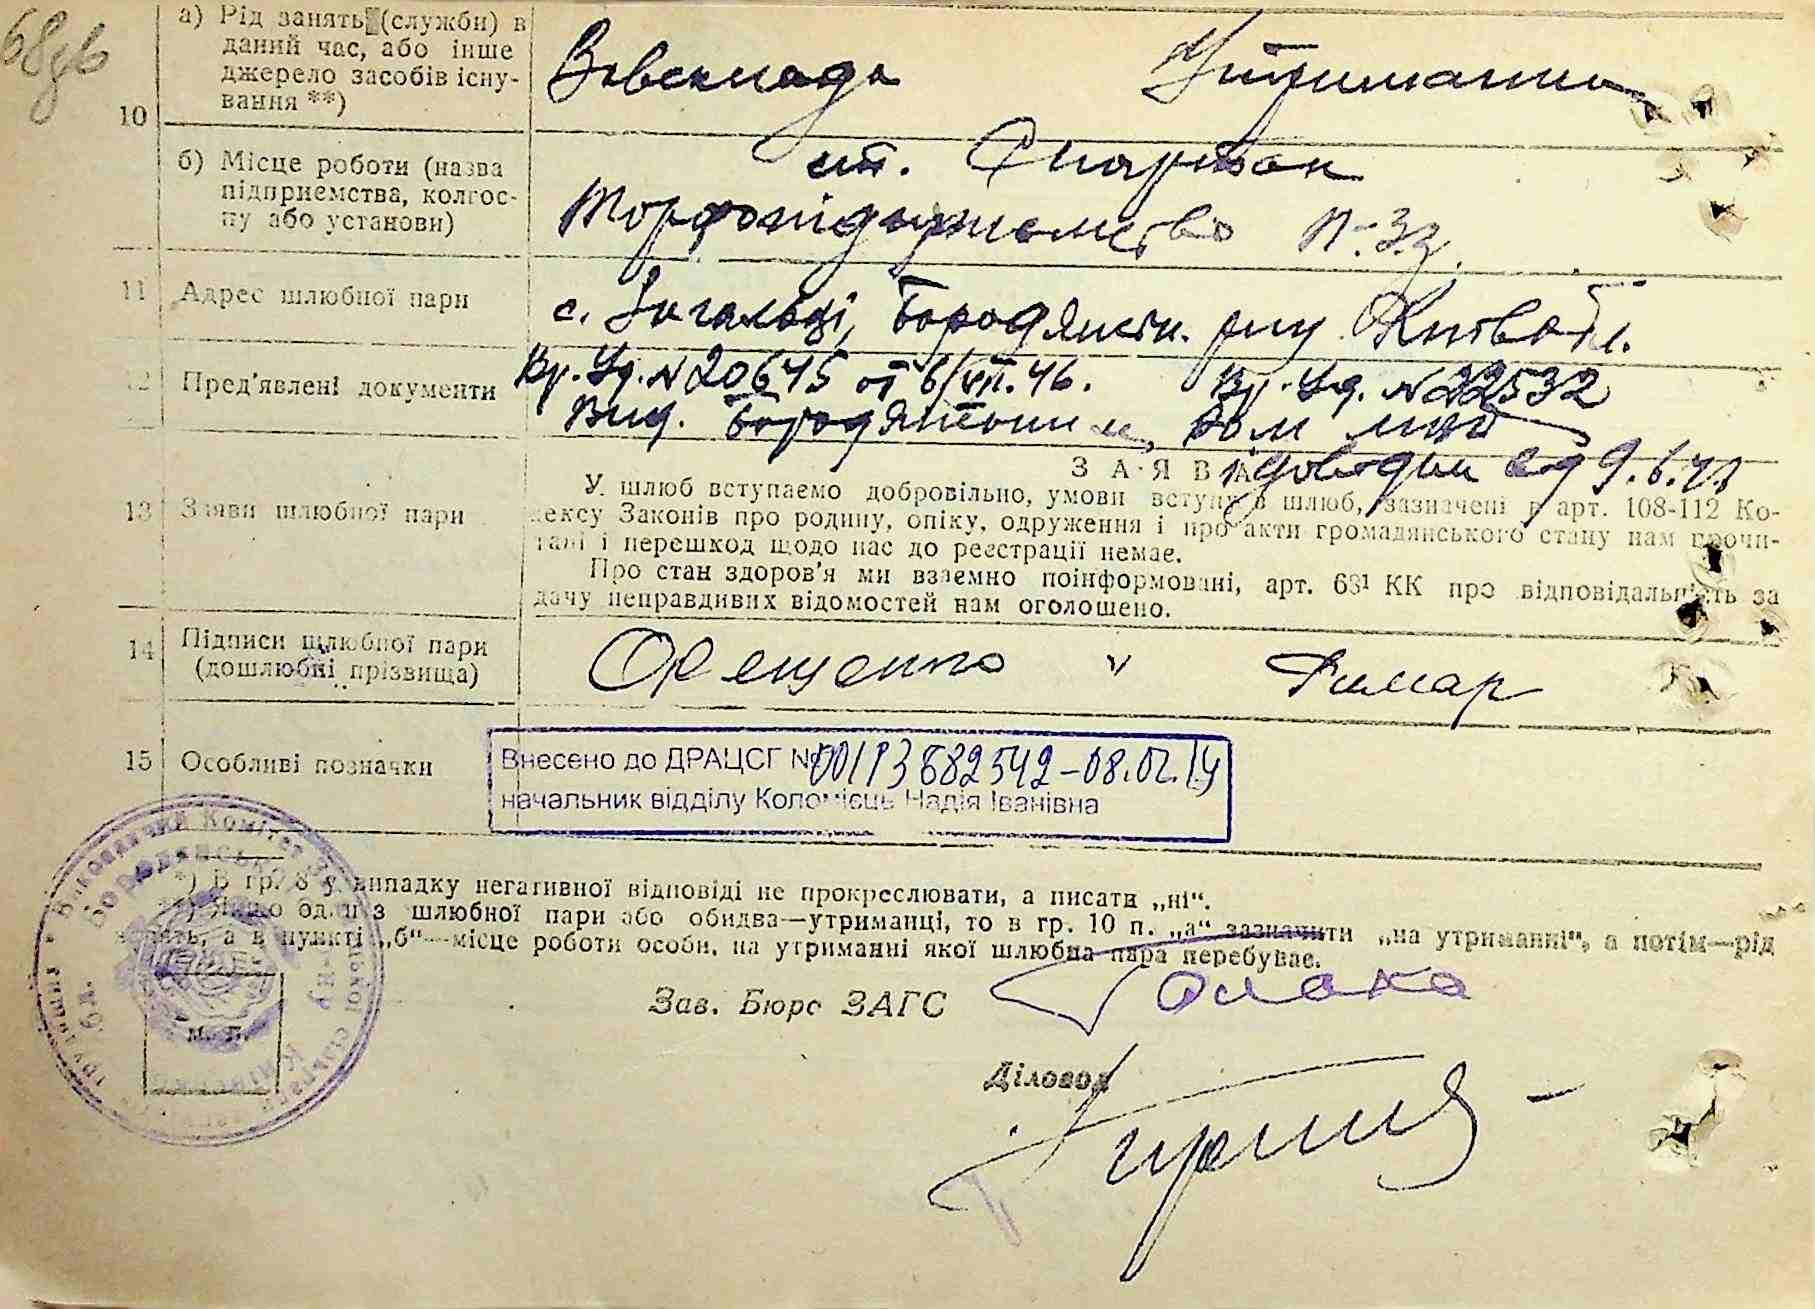 68зв
10
а) Рід занять (служби) в даний час, або інше джерело засобів існування **)
Завскладо Утримання
б) Місце роботи (назва підприємства, колгоспу або установи)
ст. Спартак
Торфопідприємство
11 Адрес шлюбної пари
с. Загальці, Бородянськ. р-ну Київ обл.
12 Пред'явлені документи
Вр. Уд. №20645 от 6/VII.46. Вр. Уд. №22532
Вид. Бородянським
від 9.6.
ЗАЯВА
13 Заяви шлюбної пари
У шлюб вступаємо добровільно, умови вступу в шлюб, зазначені в арт. 108-112 Ко-
дексу Законів про родину, опіку, одруження і про акти громадянського стану нам прочи-
тані і перешкод щодо нас до реєстрації немає.
Про стан здоров'я ми взаємно поінформовані, арт. 68¹ КК про відповідальність за
дачу неправдивих відомостей нам оголошено.
14 Підписи шлюбної пари (дошлюбні прізвища)
Олещенко Римар
15 Особливі позначки
Внесено до ДРАЦСГ № 00113682542-08.02.14
начальник відділу Коломієць Надія Іванівна
*) В гр. 8 у випадку негативної відповіді не прокреслювати, а писати „ні“.
**) Якщо один з шлюбної пари або обидва—утриманці, то в гр. 10 п. „а“ зазначити „на утриманні“, а потім—рід
занять, а в пункті „б“—місце роботи особи, на утриманні якої шлюбна пара перебуває.
Зав. Бюро ЗАГС
М. П.
Діловод